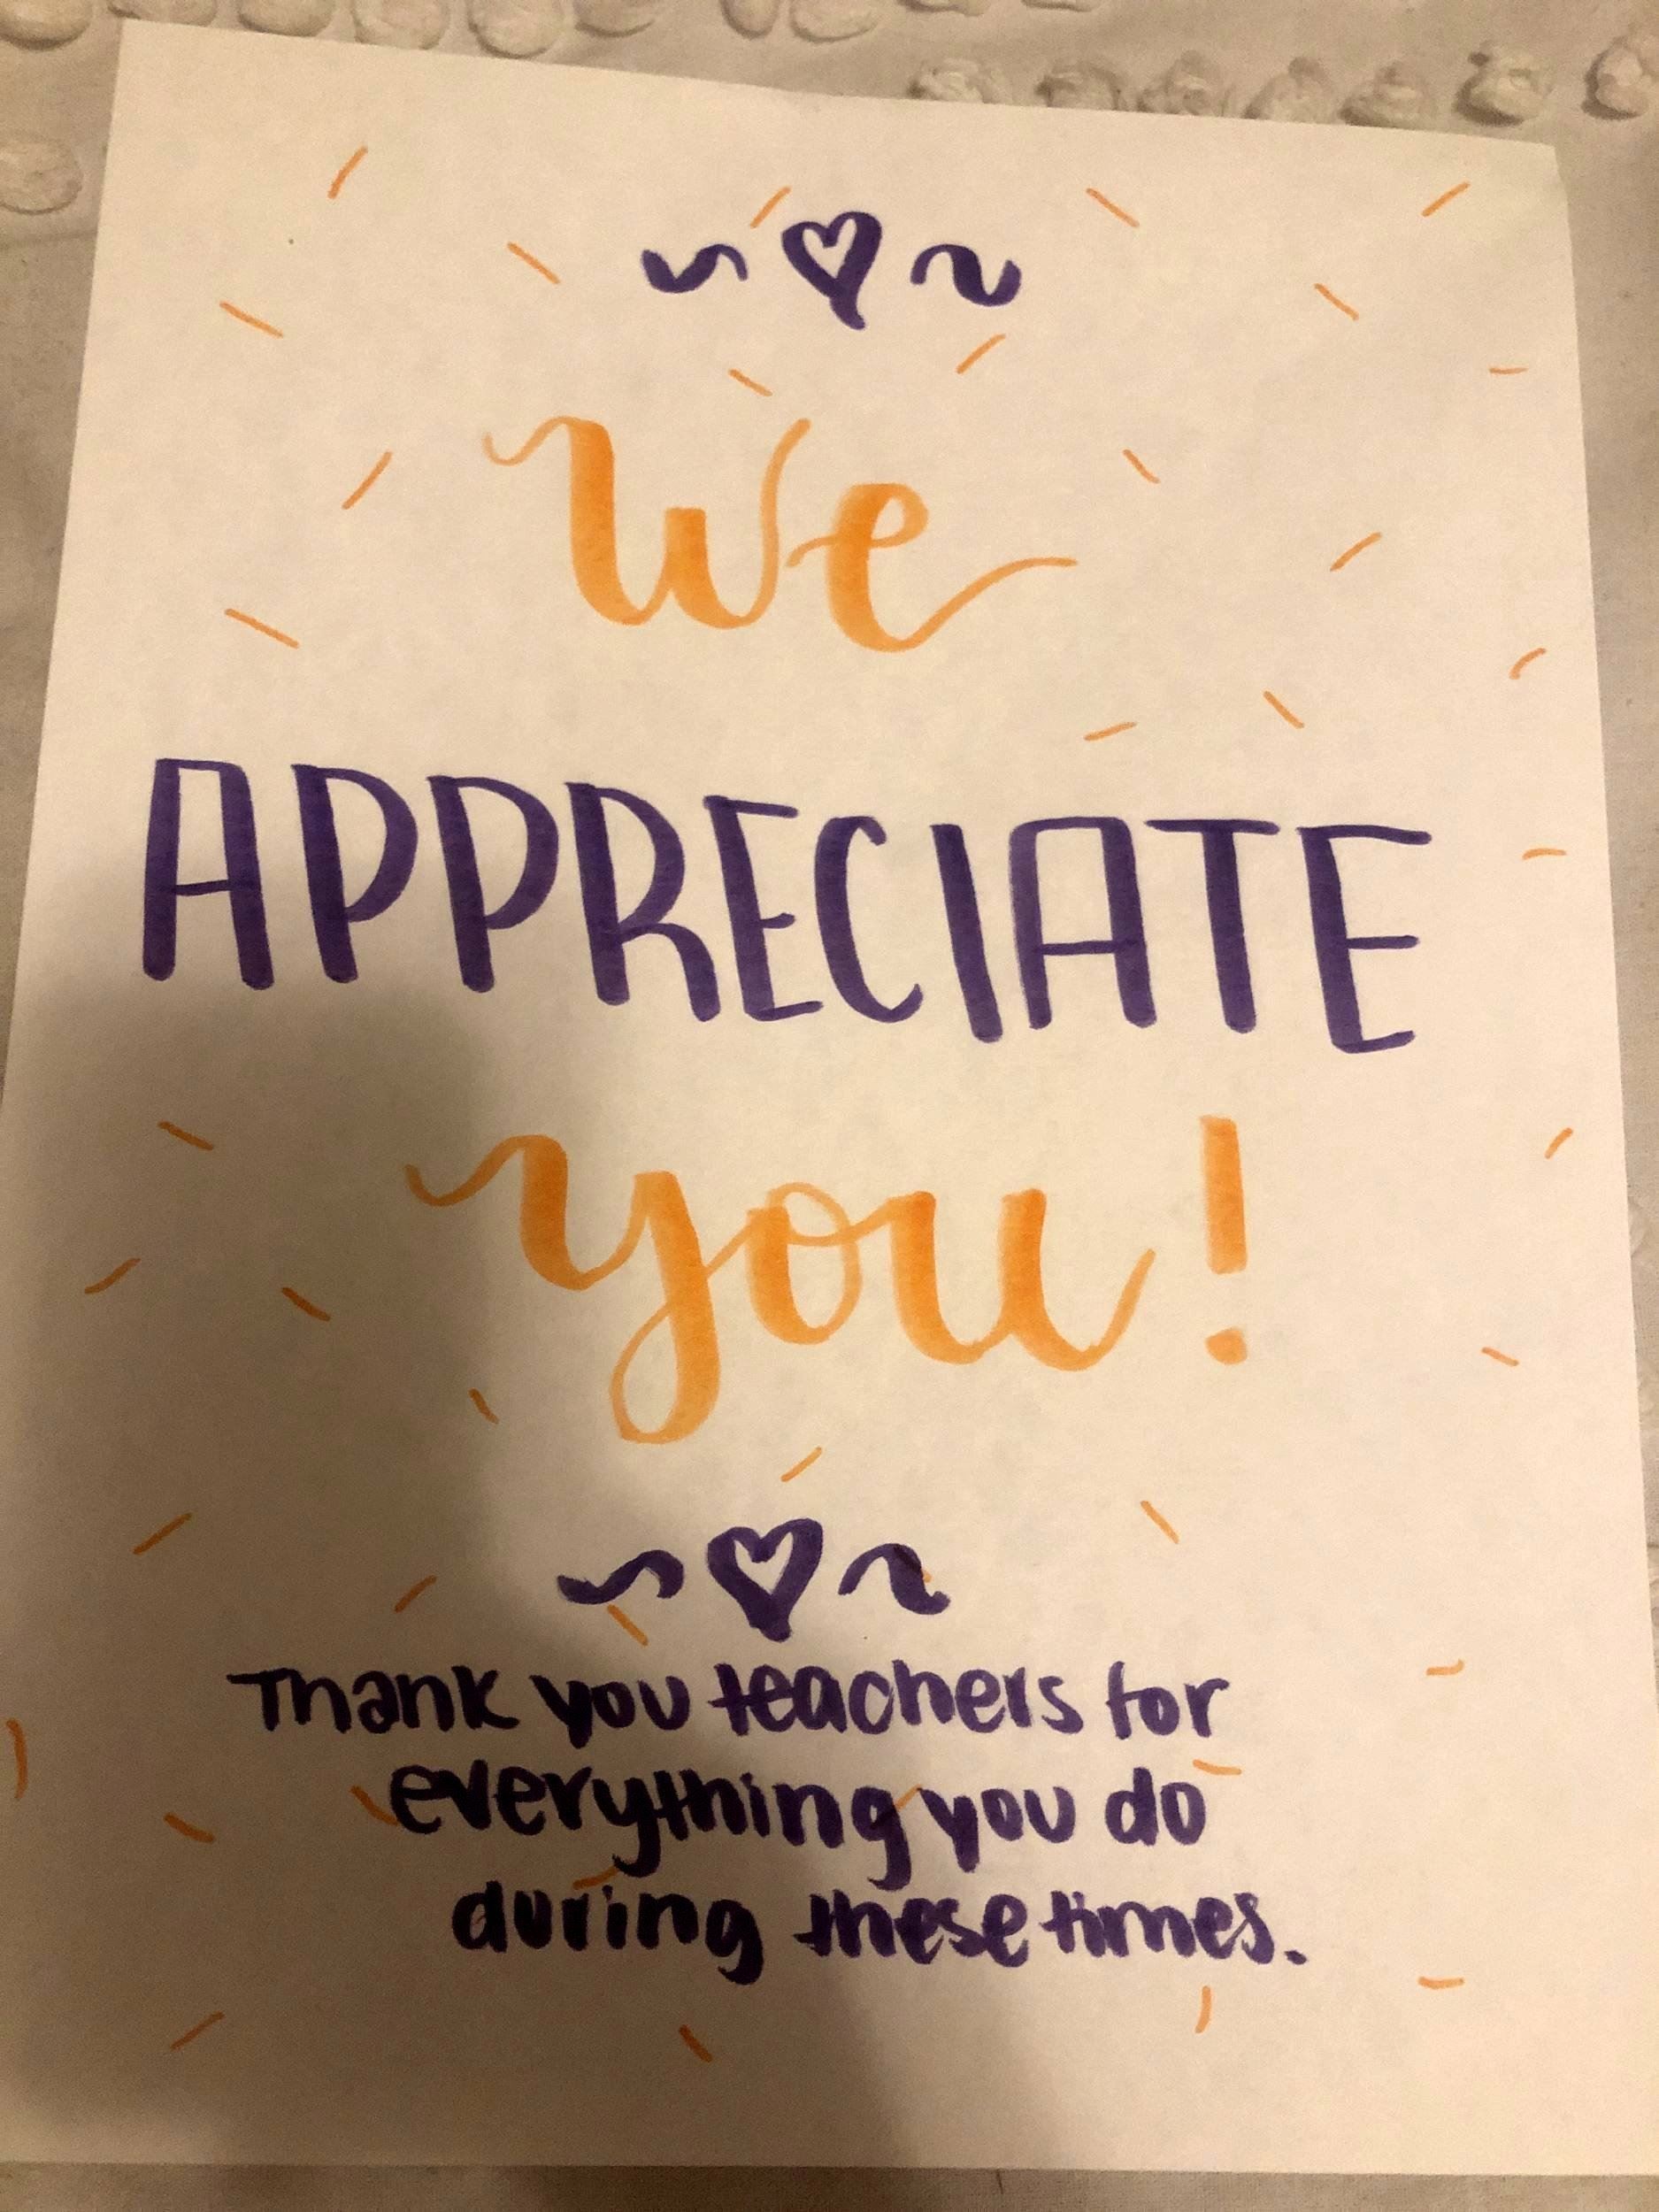 We
APPRECIATE
you!
Thank you teachers for
everything you do
during these times.